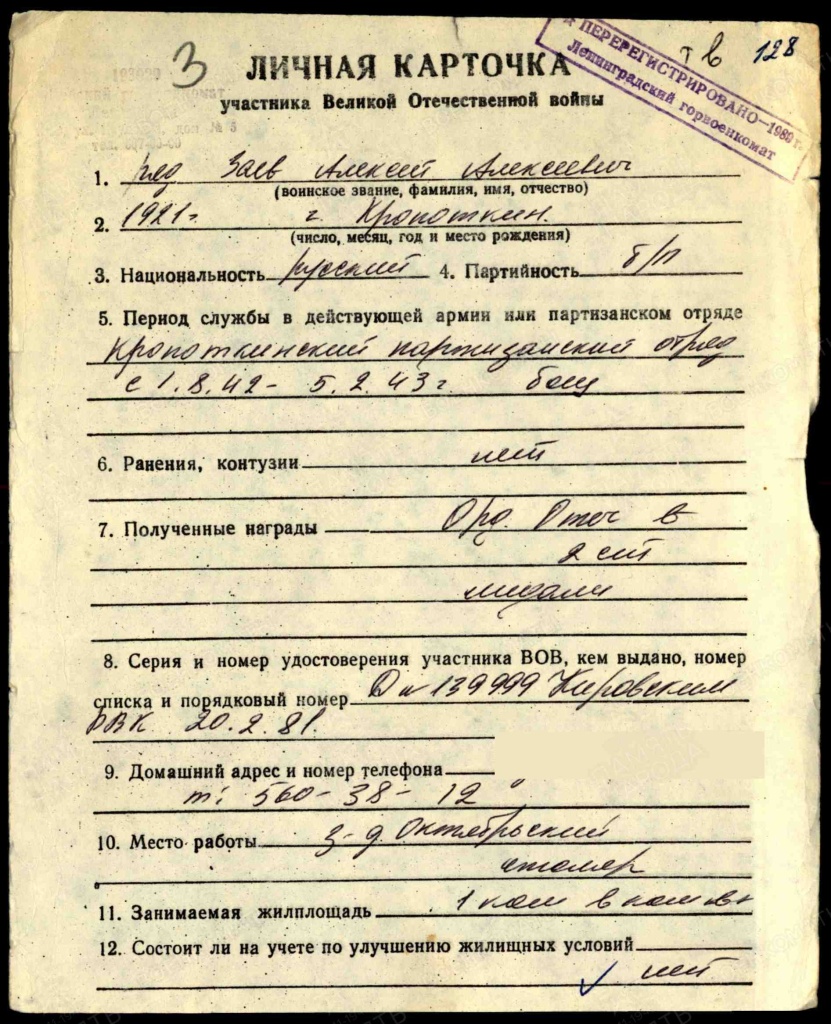 3
ТВ 128
ПЕРЕРЕГИСТРИРОВАНО—1980 г.
Ленинградский горвоенкомат
ЛИЧНАЯ КАРТОЧКА
участника Великой Отечественной войны
1. ряд Заев Алексей Алексеевич
(воинское звание, фамилия, имя, отчество)
2. 1921г. г. Кропоткин.
(число, месяц, год и место рождения)
3. Национальность русский 4. Партийность б/п
5. Период службы в действующей армии или партизанском отряде
Кропоткинский партизанский отряд
с 1.8.42- 5.2.43г боец
6. Ранения, контузии нет
7. Полученные награды Орд. Отеч В
2 ст
медали
8. Серия и номер удостоверения участника ВОВ, кем выдано, номер
списка и порядковый номер 139999 Кировским
РВК 20.2.81.
9. Домашний адрес и номер телефона
т: 560-38-12
10. Место работы з-д Октябрьский
столяр
11. Занимаемая жилплощадь 1 ком в ком кв
12. Состоит ли на учете по улучшению жилищных условий
нет